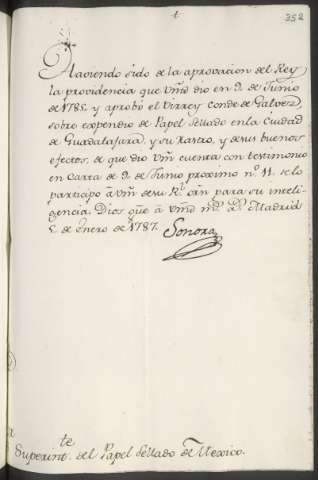 352
Haviendo sido de la aprovacion del Rey
la providencia que Vmd dio en 9. de Junio
de 1785. y aprobó el Virrey Conde de Galvez,
sobre expendio de Papel Sellado en la Ciudad
de Guadalajara, y su Rastro, y de sus buenos
efectos, de que dio Vm cuenta con testimonio
en Carta de 9. de Junio proximo nº. 11. se lo
participo à Vm. de su Rl. orñ para su inteli-
gencia. Dios gûe à Vmd ms. as. Madrid
5. de Enero de 1787.
Sonora
Superinte. del Papel Sellado de Mexico.